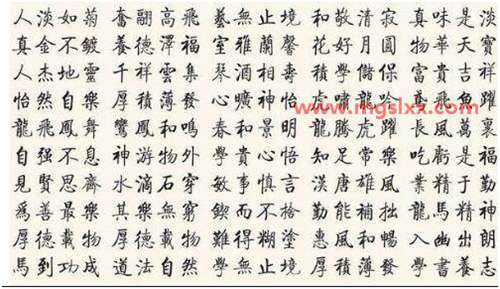 人淡如菊 奮翮高飛 藝無止境 和敬清寂 真味是淡
真金不鍍 養德澤福 室雅蘭馨 花好月圓 物華天寶
人杰地靈 千祥雲集 琴酒相壽 學儲 富貴吉祥
怡然自樂 厚積薄發 心曠神怡 虎嘯龍吟 鳶飛魚躍
龍飛鳳舞 鸞鳳和鳴 春和景明 龍騰虎躍 長風萬裏
自强不息 神游物外 學貴心悟 知足常樂 吃虧是福
見賢思齊 水滴石穿 敏事慎言 漢唐雄風 業精于勤
爲善最樂 其樂無窮 鍥而不捨 勤能補拙 龍馬精神
厚德載物 厚德載物 難得糊塗 惠風和暢 入幽出朗
馬到功成 道法自然 學無止境 厚積薄發 學書養志
www.mgslxx.com